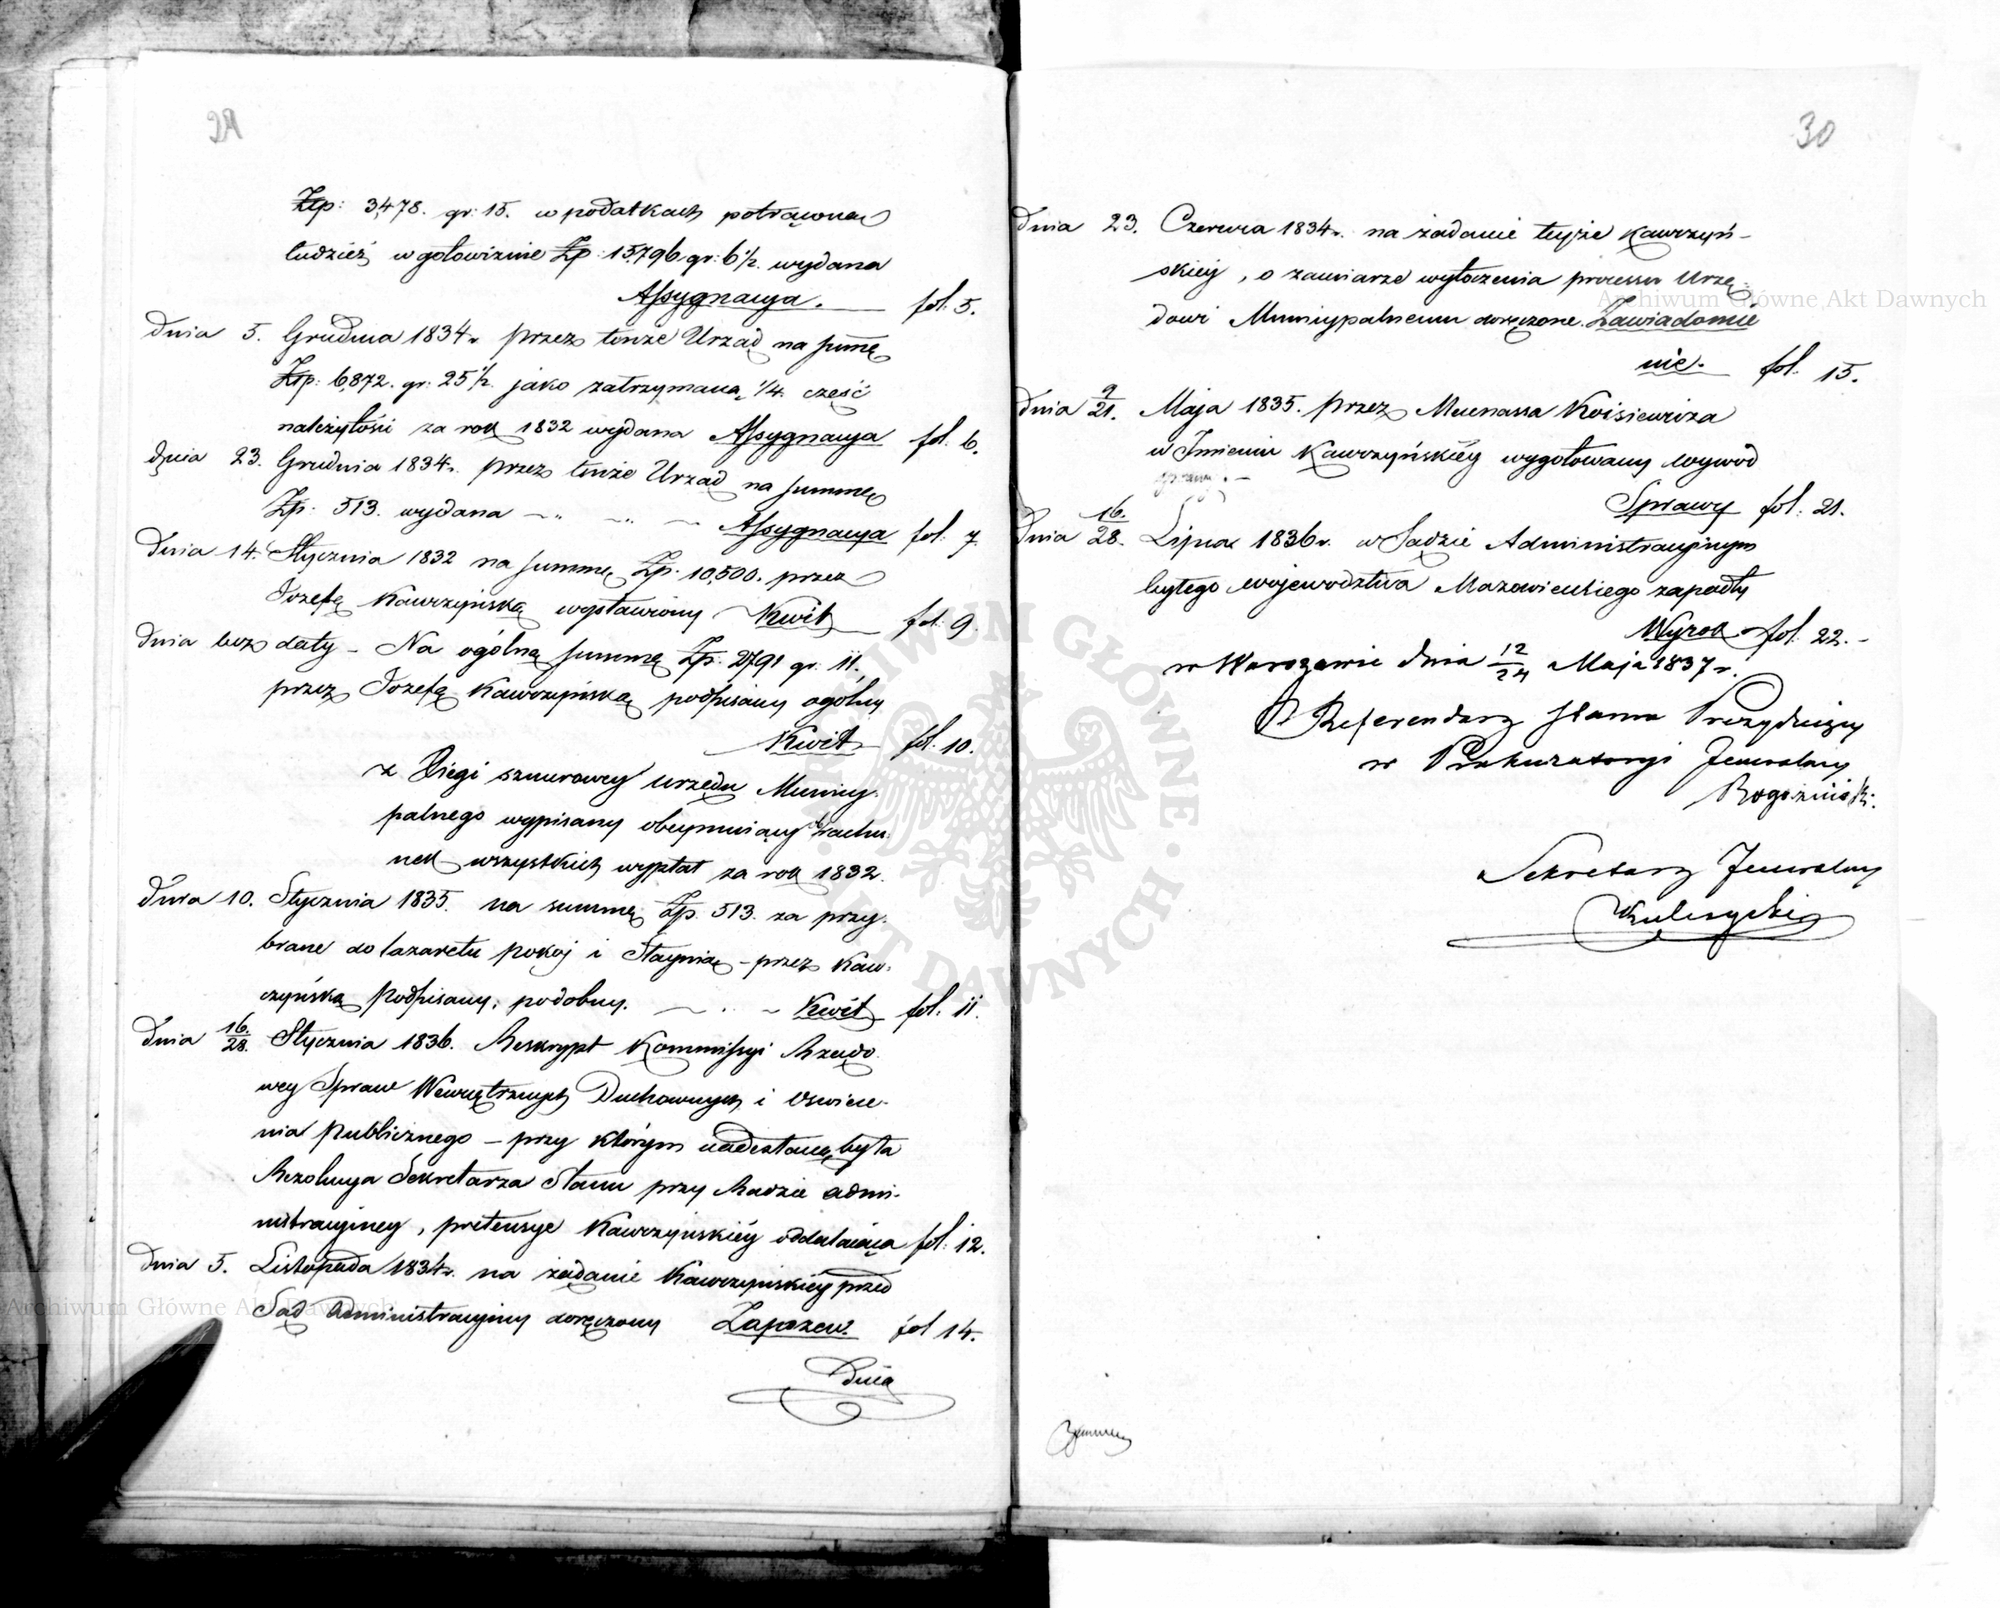 29
Złp: 3478. gr: 15. w podatkach potrącona
tudzież w gotowiznie Złp: 15,796 gr: 6 1/2. wydana
Assygnacya. fol. 5.
Dnia 5. Grudnia 1834 r. przez tenże Urząd na summę
Złp: 6,872. gr: 25 1/2. jako zatrzymaną 1/4. część
należytości za rok 1832 wydana Assygnacya fol. 6.
dnia 23. Grudnia 1834 r. przez tenże Urząd na summę
Złp. 513. wydana Assygnacya fol. 7.
Dnia 14. Stycznia 1832 na summę Złp. 10,500. przez
Jozefę Kawrzyńską wystawiony Kwit fol. 9.
dnia bez daty – Na ogólną summę Złp. 2791 gr. 11.
przez Jozefę Kawrzyńską podpisany ogólny
Kwit fol. 10.
z Xiegi sznurowey Urzędu Municy-
palnego wypisany obeymuiący rachu-
nek wszystkich wypłat za rok 1832.
dnia 10. Stycznia 1835. na summę Złp. 513. za przy-
brane do lazaretu pokoj i Staynię – przez Kaw-
rzyńską Podpisany, podobny. Kwit fol. 11.
Dnia 16./28. Stycznia 1836. Reskrypt Kommissyi Rządo-
wey Spraw Wewnętrznych Duchownych i Oswiece-
nia Publicznego – przy którym nadesłaną była
Rezolucya Sekretarza Stanu przy Radzie admi-
nistracyiney, pretensye Kawrzyńskiéy oddalaiąca fol. 12.
dnia 5. Listopada 1834 r. na żądanie Kawrzyńskiéy przed
Sąd Administracyiny doręczony Zapozew. fol 14.
Dnia
30
Dnia 23. Czerwca 1834 r. na żądanie teyże Kawrzyń-
skiéy, o zamiarze wytoczenia processu Urzę-
dowi Municypalnemu doręczone. Zawiadomie
nie. fol. 15.
dnia 9/21. Maja 1835. przez Mecenassa Koisiewicza
w Imieniu Kawrzyńskiéy wygotowany Wywod
Sprawy fol. 21.
Dnia 16./28. Lipca 1836 r. w Sądzie Administracyinym
byłego Województwa Mazowieckiego zapadły
Wyrok fol. 22.
w Warszawie dnia 12/24 Maja 1837 r.
Referendarz Stanu Prezyduiący
w Prokuratoryi Jeneralney
Rogoziński.
Sekretarz Jeneralny
Kulczycki
Archiwum Główne Akt Dawnych
Archiwum Główne Akt Dawnych